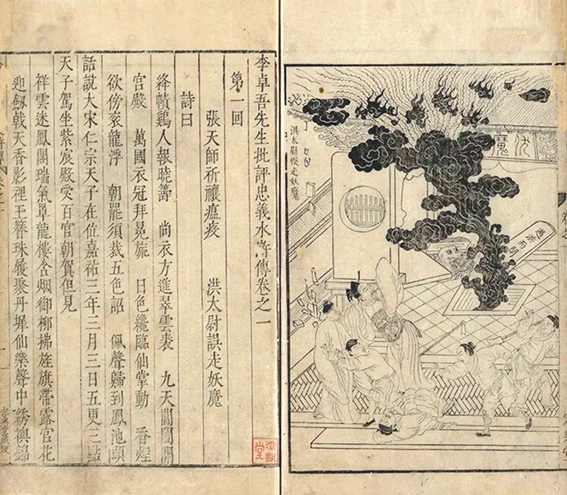 伏魔
洪太尉悮走妖魔
遇洪而開
李卓吾先生批評忠義水滸傳卷之一
第一回
張天師祈禳瘟疫 洪太尉誤走妖魔
詩曰
絳幘鷄人報曉籌 尚衣方進翠雲裘 九天閶闔開
宮殿 萬國衣冠拜冕旒 日色纔臨仙掌動 香烟
欲傍袞龍浮 朝罷須裁五色詔 佩聲歸到鳳池頭
話說大宋仁宗天子在位嘉祐三年三月三日五更三點
天子駕坐紫宸殿受百官朝賀但見
祥雲迷鳳閣瑞氣罩龍樓含烟御柳拂旌旗帶露宮花
迎劍戟天香影裡玉簪珠履聚丹墀仙樂聲中綉襖錦